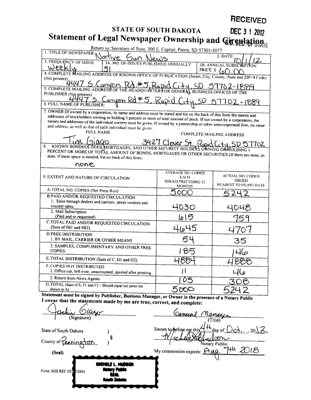 RECEIVED
DEC 31 2012
STATE OF SOUTH DAKOTA
Statement of Legal Newspaper Ownership and Circulation
Return to: Secretary of State, 500 E. Capitol, Pierre, SD 57501-5077
1. TITLE OF NEWSPAPER Native Sun News
2. DATE 10/1/12
3. FREQUENCY OF ISSUE weekly
3A. NO. OF ISSUES PUBLISHED ANNUALLY 51
3B. ANNUAL SUBSCRIPTION PRICE $ 60.00
4. COMPLETE MAILING ADDRESS OF KNOWN OFFICE OF PUBLICATION (Street, City, County, State and ZIP+4 Code) (Not printers)
4447 S. Canyon Rd #5 Rapid City, SD 57702-1889
5. COMPLETE MAILING ADDRESS OF THE HEADQUARTERS OR GENERAL BUSINESS OFFICES OF THE PUBLISHER (Not printers)
4447 S. Canyon Rd #5, Rapid City, SD 57702-1889
6. FULL NAME OF PUBLISHER:
7. OWNER (If owned by a corporation, its name and address must be stated and
FULL NAME
COMPLETE MAILING ADDRESS
Tim Giago
3427 Clover St. Rapid City SD 57702
8. KNOWN BONDHOLDERS, MORTGAGEES, AND OTHER SECURITY HOLDERS OWNING OR HOLDING 1
PERCENT OR MORE OF TOTAL AMOUNT OF BONDS, MORTGAGES OR OTHER SECURITIES (If there are none, so
state. If more space is needed, list on back of this form.
none
9. EXTENT AND NATURE OF CIRCULATION
AVERAGE NO. COPIES EACH ISSUED PRECEDING 12 MONTHS
ACTUAL NO. COPIES ISSUED NEAREST TO FILING DATE
A. TOTAL NO. COPIES (Net Press Run) 5000 5242
B. PAID AND/OR REQUESTED CIRCULATION
1. Sales through dealers and carriers, street vendors and counter sales. 4030 4048
2. Mail Subscription (Paid and/or requested) 615 759
C. TOTAL PAID AND/OR REQUESTED CIRCULATION (Sum of 9B1 and 9B2) 4645 4707
D. FREE DISTRIBUTION
1. BY MAIL, CARRIER OR OTHER MEANS 54 35
2. SAMPLES, COMPLIMENTARY AND OTHER FREE COPIES 185 146
E. TOTAL DISTRIBUTION (Sum of C, D1 and D2) 4884 4888
F. COPIES NOT DISTRIBUTED
1. Office use, left over, unaccounted, spoiled after printing 11 46
2. Return from News Agents 105 308
G. TOTAL (Sum of E, F1 and F2 - Should equal net press run shown in A) 5000 5242
Statement must be signed by Publisher, Business Manager, or Owner in the presence of a Notary Public
I swear that the statements made by me are true, correct, and complete:
General Manager
(Signature) (Title)
State of South Dakota )
Sworn to before me this 4th day of Oct., 2012
County of Pennington )
Notary Public
(Seal)
My commission expires: Aug 7th 2018
Notary Public
SEAL
South Dakota